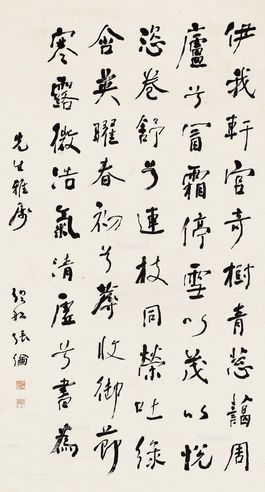 伊我軒宮奇樹青蔥藹周
廬兮冒霜停雪以茂以悅
恣卷舒兮連枝同榮吐綠
含英曜春初兮蓐收御節
寒露微結氣清虛兮書為
先生雅屬
張